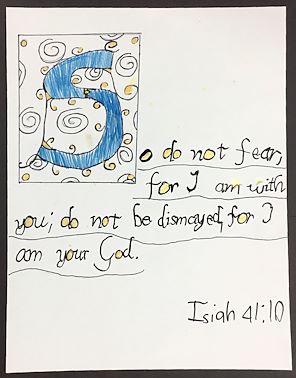 So do not fear,
for I am with
you; do not be dismayed, for I
am your God.
Isiah 41:10